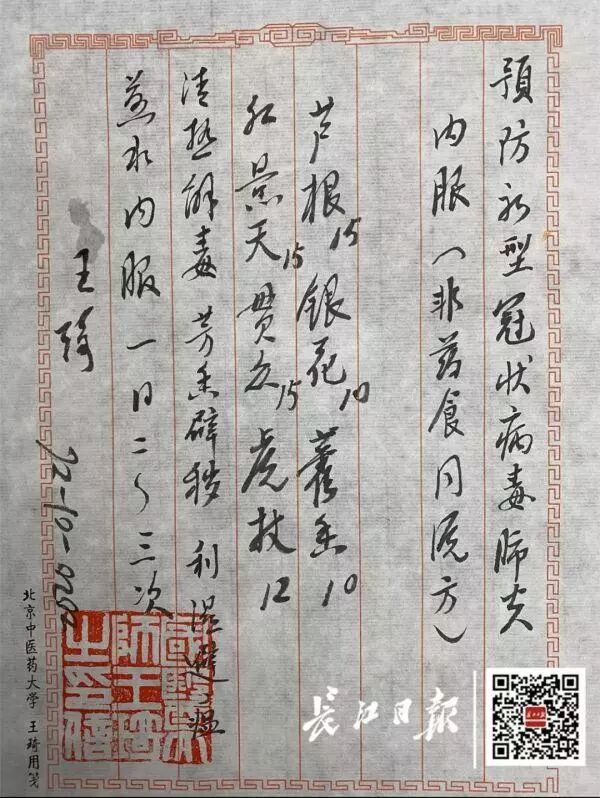 预防新型冠状病毒肺炎
内服（非药食同源方）
芦根15 银花10 藿香10
红景天15 贯众15 虎杖12
清热解毒 芳香辟秽 利湿避瘟
煎水内服 一日二～三次
王琦
2020-01-22
北京中医药大学 王琦用笺
国医大师王琦之印
长江日报